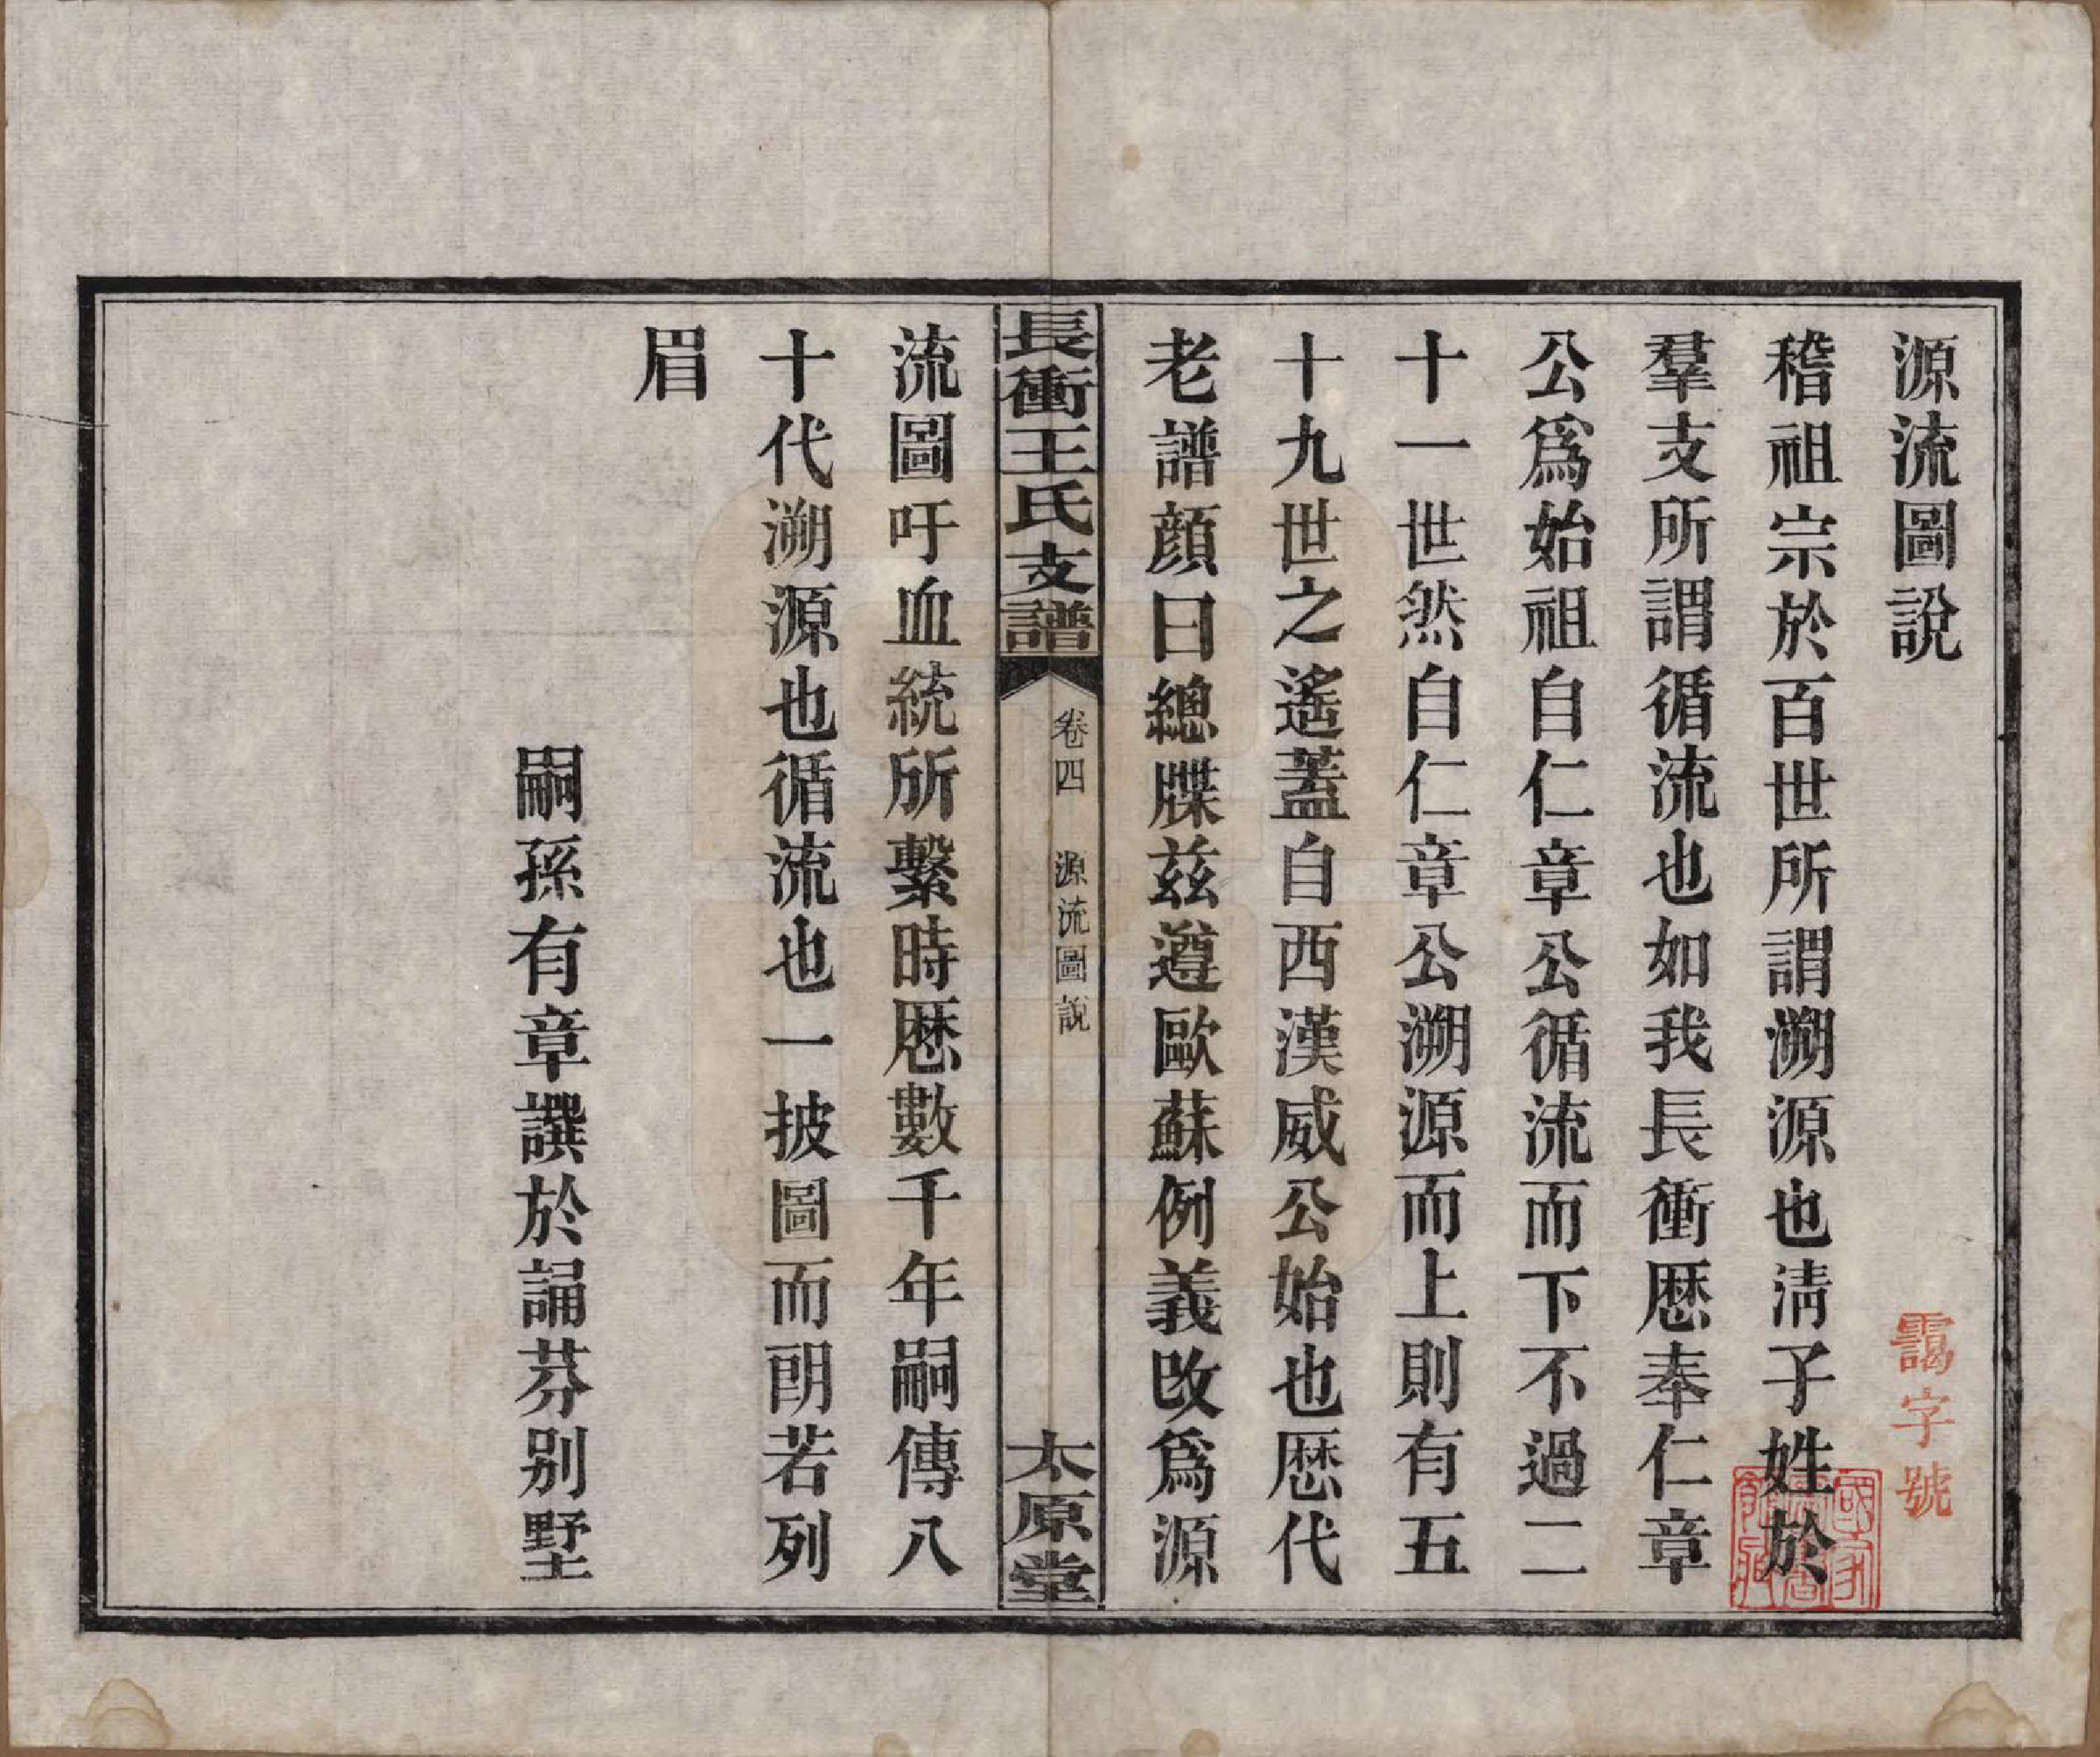 源流圖說
稽祖宗於百世所謂溯源也淸子姓於
羣支所謂循流也如我長衝厯奉仁章
公爲始祖自仁章公循流而下不過二
十一世然自仁章公溯源而上則有五
十九世之遙蓋自西漢威公始也厯代
老譜顏曰總牒茲遵歐蘇例義改爲源
長衝王氏支譜
卷四 源流圖說
太原堂
流圖吁血統所繫時厯數千年嗣傳八
十代溯源也循流也一披圖而朗若列
眉
嗣孫有章譔於誦芬別墅
靄字號